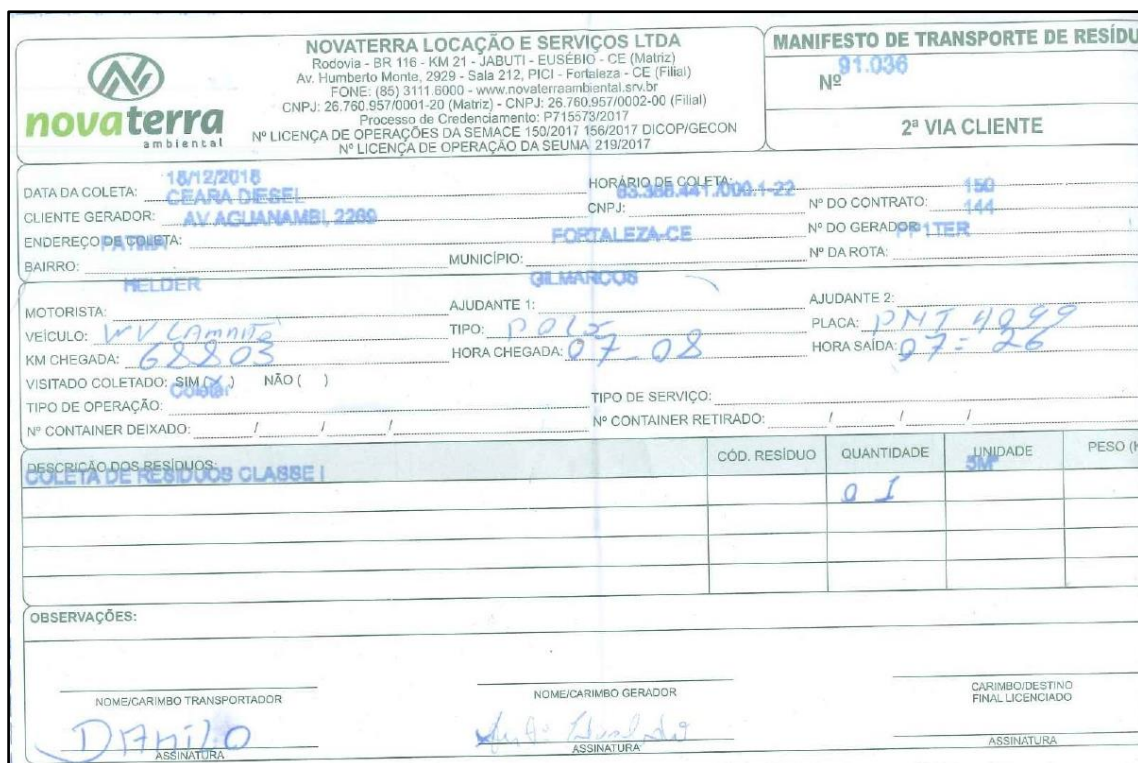 novaterra
ambiental
NOVATERRA LOCAÇÃO E SERVIÇOS LTDA
Rodovia - BR 116 - KM 21 - JABUTI - EUSÉBIO - CE (Matriz)
Av. Humberto Monte, 2929 - Sala 212, PICI - Fortaleza - CE (Filial)
FONE: (85) 3111.6000 - www.novaterraambiental.srv.br
CNPJ: 26.760.957/0001-20 (Matriz) - CNPJ: 26.760.957/0002-00 (Filial)
Processo de Credenciamento: P715573/2017
Nº LICENÇA DE OPERAÇÕES DA SEMACE 150/2017 156/2017 DICOP/GECON
Nº LICENÇA DE OPERAÇÃO DA SEUMA 219/2017
MANIFESTO DE TRANSPORTE DE RESÍDU
Nº 91.036
2ª VIA CLIENTE
18/12/2018
DATA DA COLETA: CEARA DIESEL HORÁRIO DE COLETA: 150
CLIENTE GERADOR: AV AGUANAMBI, 2269 CNPJ: Nº DO CONTRATO: 144
ENDEREÇO DE COLETA: FATIMA FORTALEZA-CE Nº DO GERADOR:
BAIRRO: MUNICÍPIO: Nº DA ROTA:
HELDER GILMARCOS
MOTORISTA: AJUDANTE 1: AJUDANTE 2:
VEÍCULO: TIPO: PLACA: PNT 4099
KM CHEGADA: 68803 HORA CHEGADA: 07-08 HORA SAÍDA: 07=26
VISITADO COLETADO: SIM (X) NÃO ( )
Coletar
TIPO DE OPERAÇÃO: TIPO DE SERVIÇO:
Nº CONTAINER DEIXADO: / / / Nº CONTAINER RETIRADO: / / /
DESCRIÇÃO DOS RESÍDUOS: CÓD. RESÍDUO QUANTIDADE UNIDADE PESO (K
COLETA DE RESIDUOS CLASSE I 5M³
01
OBSERVAÇÕES:
NOME/CARIMBO TRANSPORTADOR NOME/CARIMBO GERADOR CARIMBO/DESTINO
FINAL LICENCIADO
DANILO
ASSINATURA ASSINATURA ASSINATURA